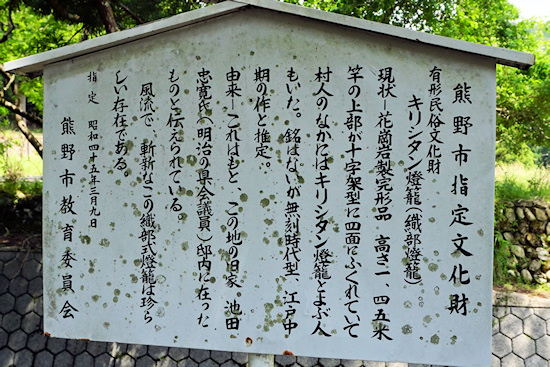 熊野市指定文化財
有形民俗文化財
キリシタン燈籠(織部燈籠)
現状―花崗岩製完形品 高さ一、四五米
竿の上部が十字架型に四面にふくれていて
村人のなかにはキリシタン燈籠とよぶ人
もいた。銘はないが無刻時代型、江戸中
期の作と推定。
由来―これはもと、この地の旧家 池田
忠寛氏(明治の県会議員)邸内に在った
ものと伝えられている。
風流で、斬新なこの織部式燈籠は珍ら
しい存在である。
指定 昭和四十五年三月九日
熊野市教育委員会